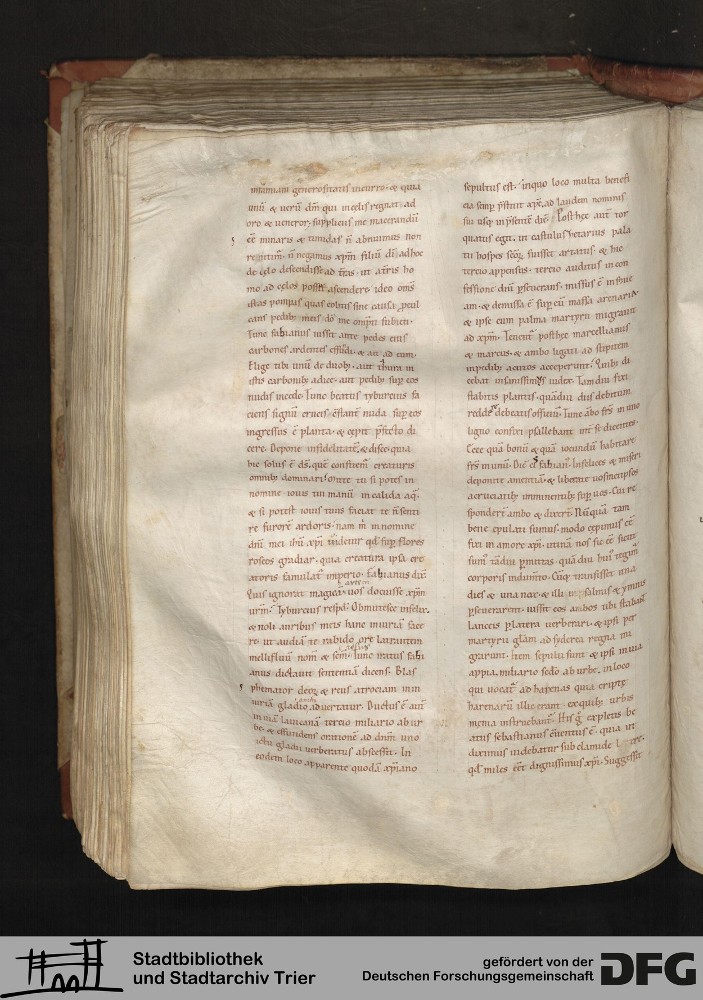 infamiam generositatis incurro. & quia
unū & uerū dm̄ qui in celis regnat. ad
oro & ueneror. suppliciis me macerandū
ēē minaris & timidas n̄ abnuimus non
n̄ negamus xp̄m filiū dī adhoc
de cęlo descendisse ad t̄ras. ut at̄ris ho
mo ad cęlos posset ascendere. ideo om̄s
istas pompas quas colitis sine causa ꝓcul
eas pedibꝰ meis dō me om̄pti subici.
Tunc fabianus iussit ante pedes eius
carbones ardentes effūdi. & ait ad eum.
Elige tibi unū de duobꝰ. aut thura in
istis carbonibꝰ adice. aut pedibꝰ suꝑ eos
nudis incede. Tunc beatus tyburcius fa
ciens signū crucis. c̄stant nuda suꝑ eos
ingressus ē planta. & cępit p̄fecto di
cere. Depone infidelitatē. & disce. quia
hic solus ē dś. quē confitem̄ creaturis
omnibꝰ dominari. Mitte tu si potes in
nomine iouis tui manū in calida aq̄.
& si potest iouis tuus faciat te n̄ senti
re furorē ardoris. nam m̄ in nomine
dn̄i mei ihū xp̄i uidetur qd̄ suꝑ flores
roseos gradiar. quia creatura ipsa cre
atoris famulat̄ imperio. Fabianus dix̄.
artem
Quis ignorat magica uos docuisse xp̄m
urm̄. Tyburcius resp̄d. Obmutesce infelix.
& noli auribus meis hanc iniuriā face
re. ut audiā te rabido ore latrantem
mellifluū nom̄ & scm̄. Tunc iratus fabi
anus dictauit sententiam dicens. Blas
phemator deorꝝ & reus atrociam in
iuriā gladio aduertatur. Ductus ē aut̄
in uiā lauicanā tercio miliario ab ur
be. & effundens orationē ad dn̄m uno
ictu gladii uerberatus abscessit. In
eodem loco apparente quodā xp̄iano
sepultus est. inquo loco multa benefi
cia semꝑ p̄stitit xp̄c. ad laudem nominis
sui usq̄ in p̄sentē diē. Post hęc aut̄ tor
quatus egit. ut castulus hetarius pala
tii hospes scōꝝ fuisset artatus. & hic
tercio appensus. tercio auditus in con
fessione dn̄i ꝑseuerans. missus ē in foue
am. & demissa ē suꝑ eū massa arenaria.
& ipse cum palma martyrii migrauit
ad xp̄m. Tenent̄ posthęc marcellianus
& marcus. & ambo ligati ad stipitem
in pedibꝰ acutos acceperunt. Quibꝰ di
cebat insanissimus iudex. Tam diu fixi
stabitis plantis. quādiu diis debitum
reddere debeatis officiū. Tunc abo fr̄s in uno
ligno confixi psallebant int̄ se dicentes.
Ecce quā bonū & quā iocundū habitare
fr̄s in unū. Dic̄ eis fabian̄. Infelices & miseri
deponite amentiā. & liberate uosmetipsos
a cruciatibꝰ imminentibꝰ suꝑ uos. Cui re
sponderī ambo & dixerī. Nūquā tam
bene epulati fuimus. modo cępimus ēē
fixi in amore xp̄i. utinā nos sic ēē sicut
sum̄ tādiu ꝑmittas. quā diu hui tegim̄
corporis induīnto. Cūq̄ transisset una
dies & una nox & illi in psalmis & ymnis
ꝑseuerarent. iussit eos ambos ubi stabant
lanceis p latera uerberari. & ipsi per
martyrii glam̄ ad syderea regna mi
grarunt. Item sepulti sunt & ipsi in uia
appia. miliario scdō ab urbe. in loco
qui uocat̄ ad harenas quia criptę
harenarū illic erant. ex quibꝰ urbis
męnia instruebant̄. His ḡ expletis be
atus sebastianus cōuentus ē. quia ut
diximus uidebatur sub clamide
qd̄ miles ēēt dignissimus xp̄i. Suggessit
Stadtbibliothek
und Stadtarchiv Trier
gefördert von der
Deutschen Forschungsgemeinschaft
DFG